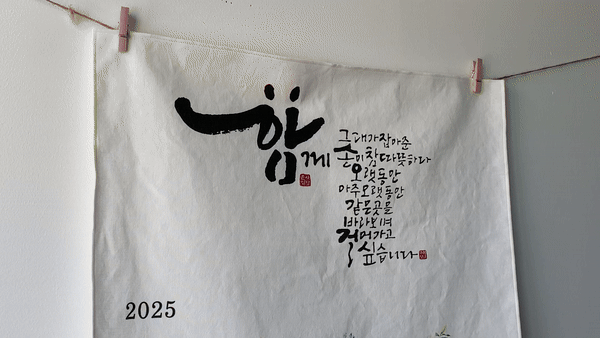 함께
그대가 잡아준
손이 참 따뜻하다
오랫동안
아주 오랫동안
같은 곳을
바라보며
걸어가고
싶습니다
2025